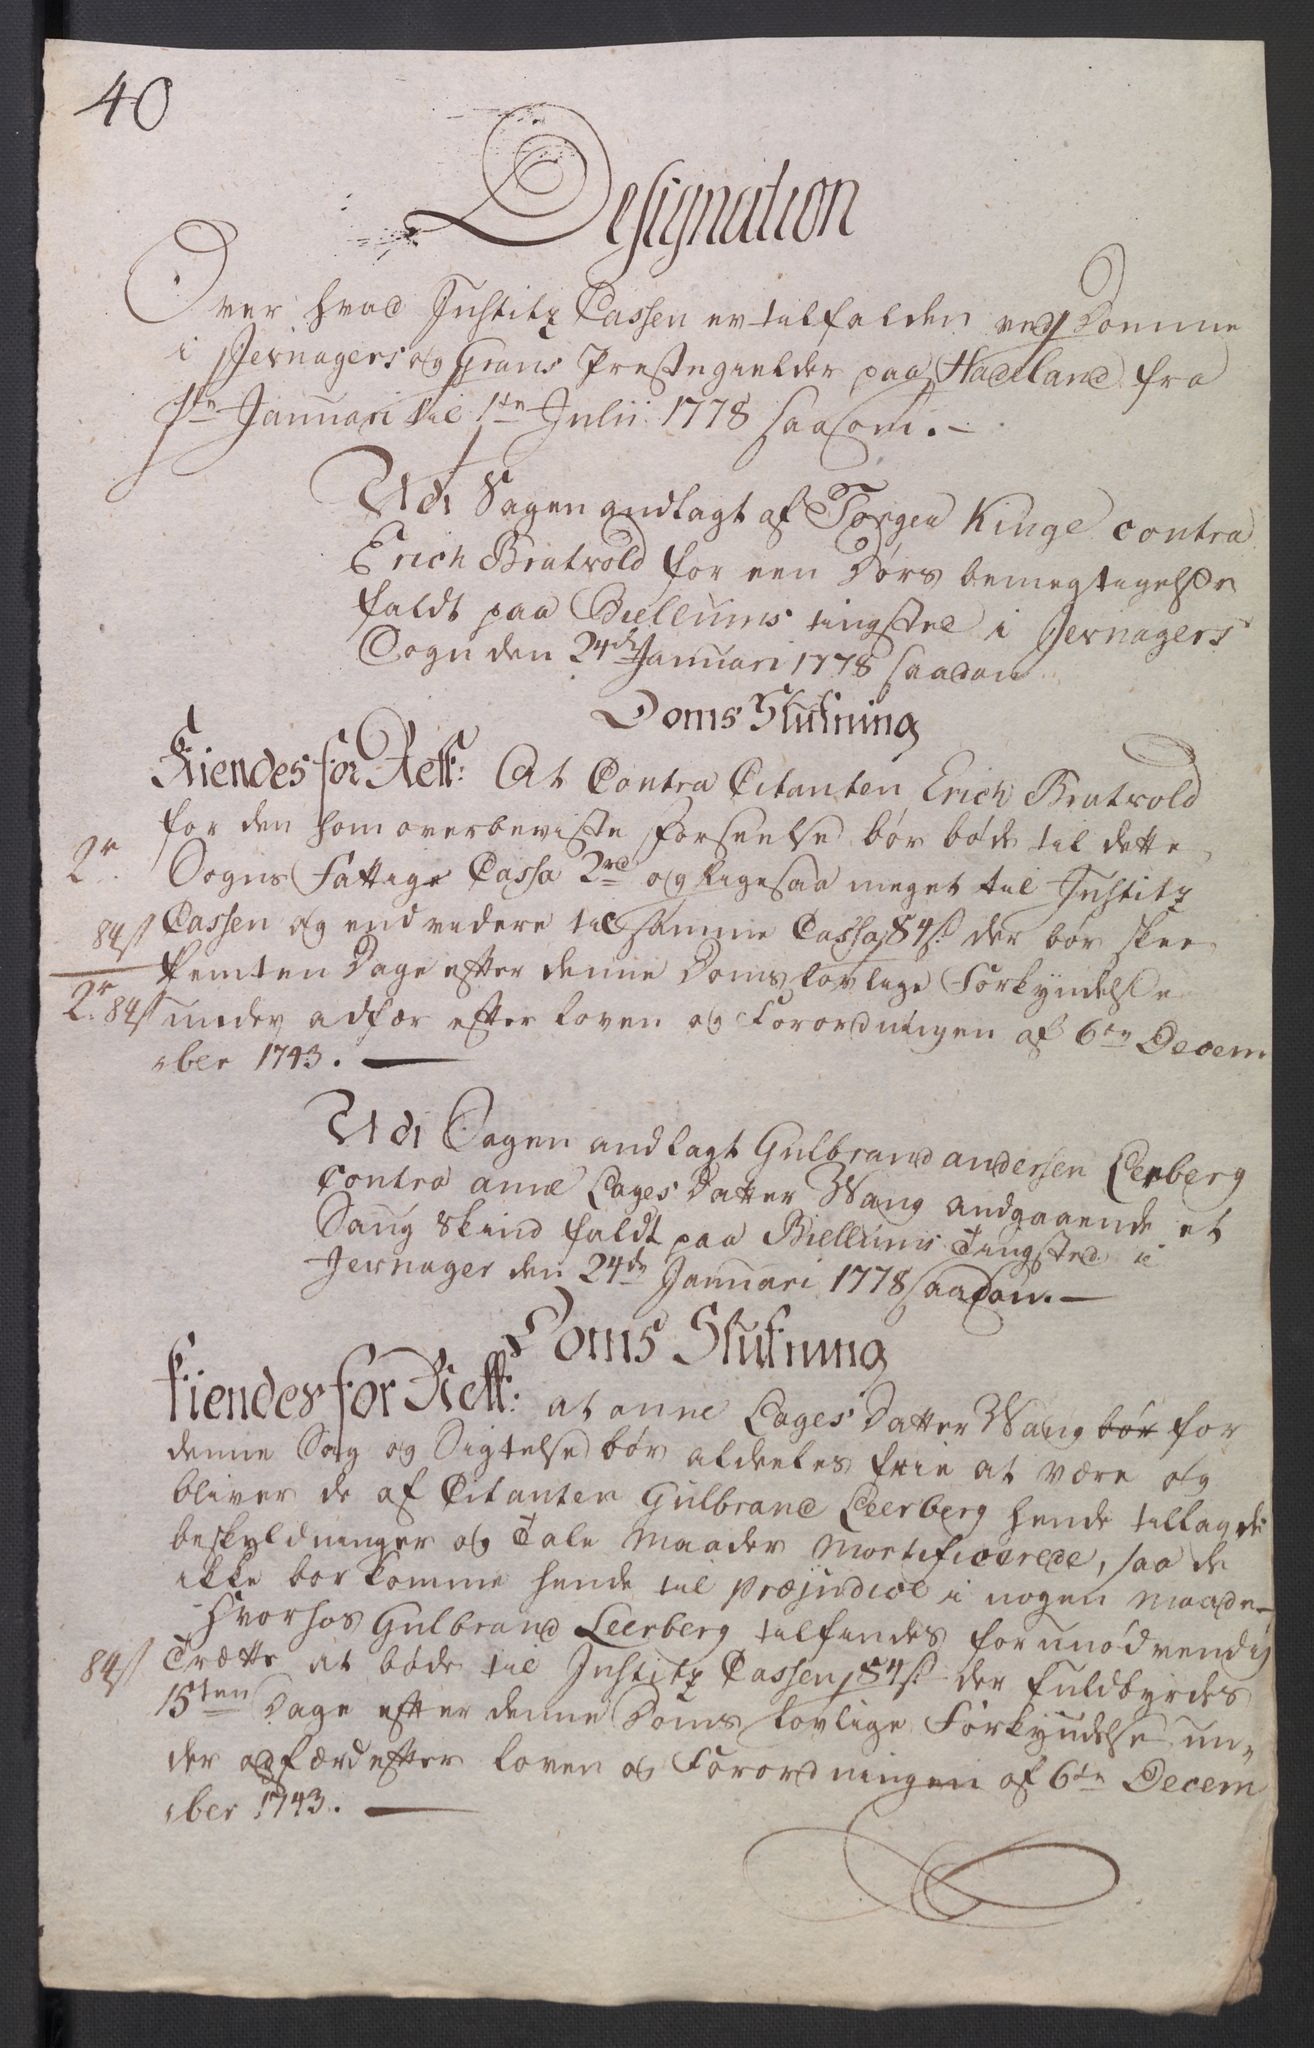 40
Designation
Over hvad Justitz Cassen er tilfalden ved Domme
i Jevnagers og Grans Præstegielder paa Hadeland fra
1ste Januari til 1ste Julii 1778 saasom. –
Udi Sagen andlagt af Torgen Kinge contra
Erich Bratvold for een Dørs bemegtigelse
faldt paa Biellums tingsted i Jevnagers
Sogn den 24de Januari 1778 saadan
Doms Slutning
Kiendes for Rett: At Contra Citanten Erich Bratvold
for den ham overbeviste Forseelse bør bøde til dette
2r.
Sogns Fattige Cassa 2rd og ligesaa meget til Justitz
84ß
Cassen og end videre til samme Cassa 84ß. der bør skee
femten Dage efter denne Doms lovlige Forkyndelse
2r. 84ß
under adfær efter loven og Forordningen af 6ten Decem
ber 1743. —
Udi Sagen andlagt Gulbrand andersen Leerberg
contra anne Lages Datter Wang andgaaende et
Saug Skind faldt paa Biellums Tingsted i
Jevnager den 24de Januari 1778 saadan. —
Doms Slutning
Kiendes for Rett: at anne Lages Datter Wang bør for
denne Sag og Sigtelse bør aldeeles frie at være og
bliver de af Citanten Gulbrand Leerberg hende tillagde
beskyldninger og Tale Maader Mortificerede, saa de
ikke bør komme hende til præjudice i nogen Maade –
Hvorhos Gulbrand Leerberg tilfindes for unødvendig
84ß
Trætte at bøde til Justitz Cassen 84ß. der fuldbyrdes
15ten Dage efter denne Doms lovlige Forkyndelse un,,
der adfærd efter loven og Forordningen af 6te Decem
ber 1743. —